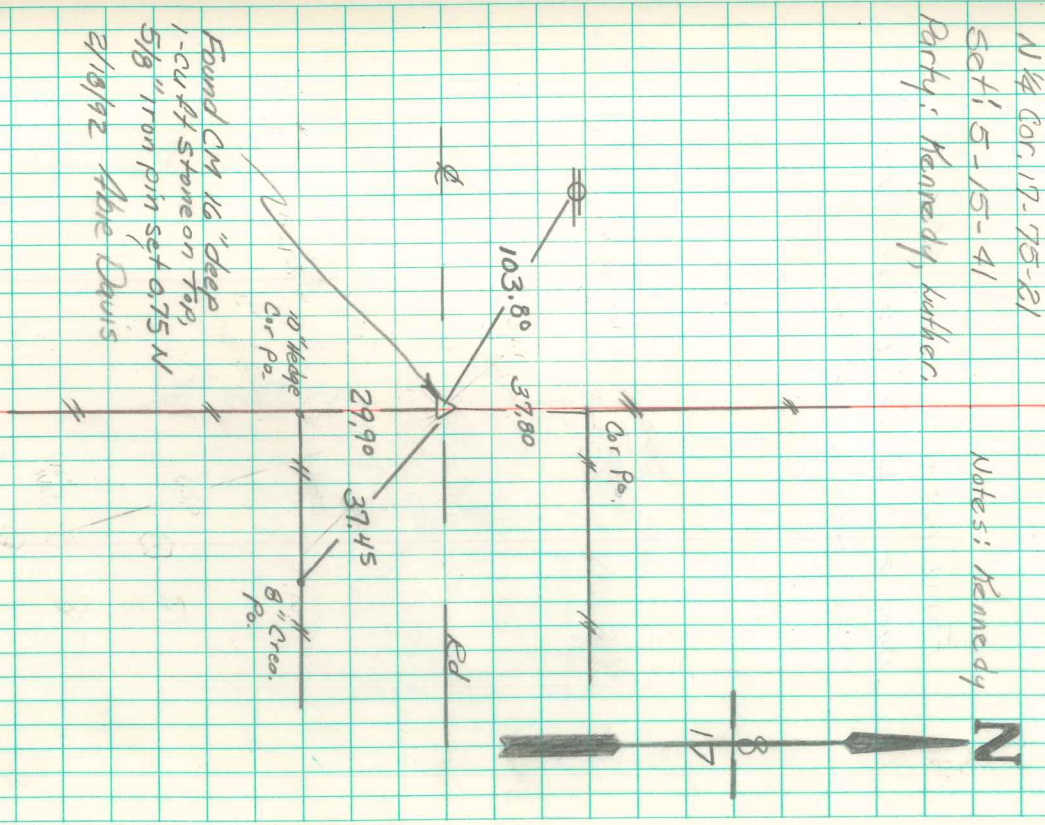 N 1/4 Cor. 17-75-21
Set: 5-15-41
Party: Kennedy, Luther.
Notes: Kennedy
N
8
17
103.80
37.80
Cor Po.
℄
Rd
29.90
10" Hedge
Cor Po.
37.45
8" Creo.
Po.
Found CM 16" deep
1-cu ft stone on top,
5/8" iron pin set 0.75 N
2/18/92 Abie Davis